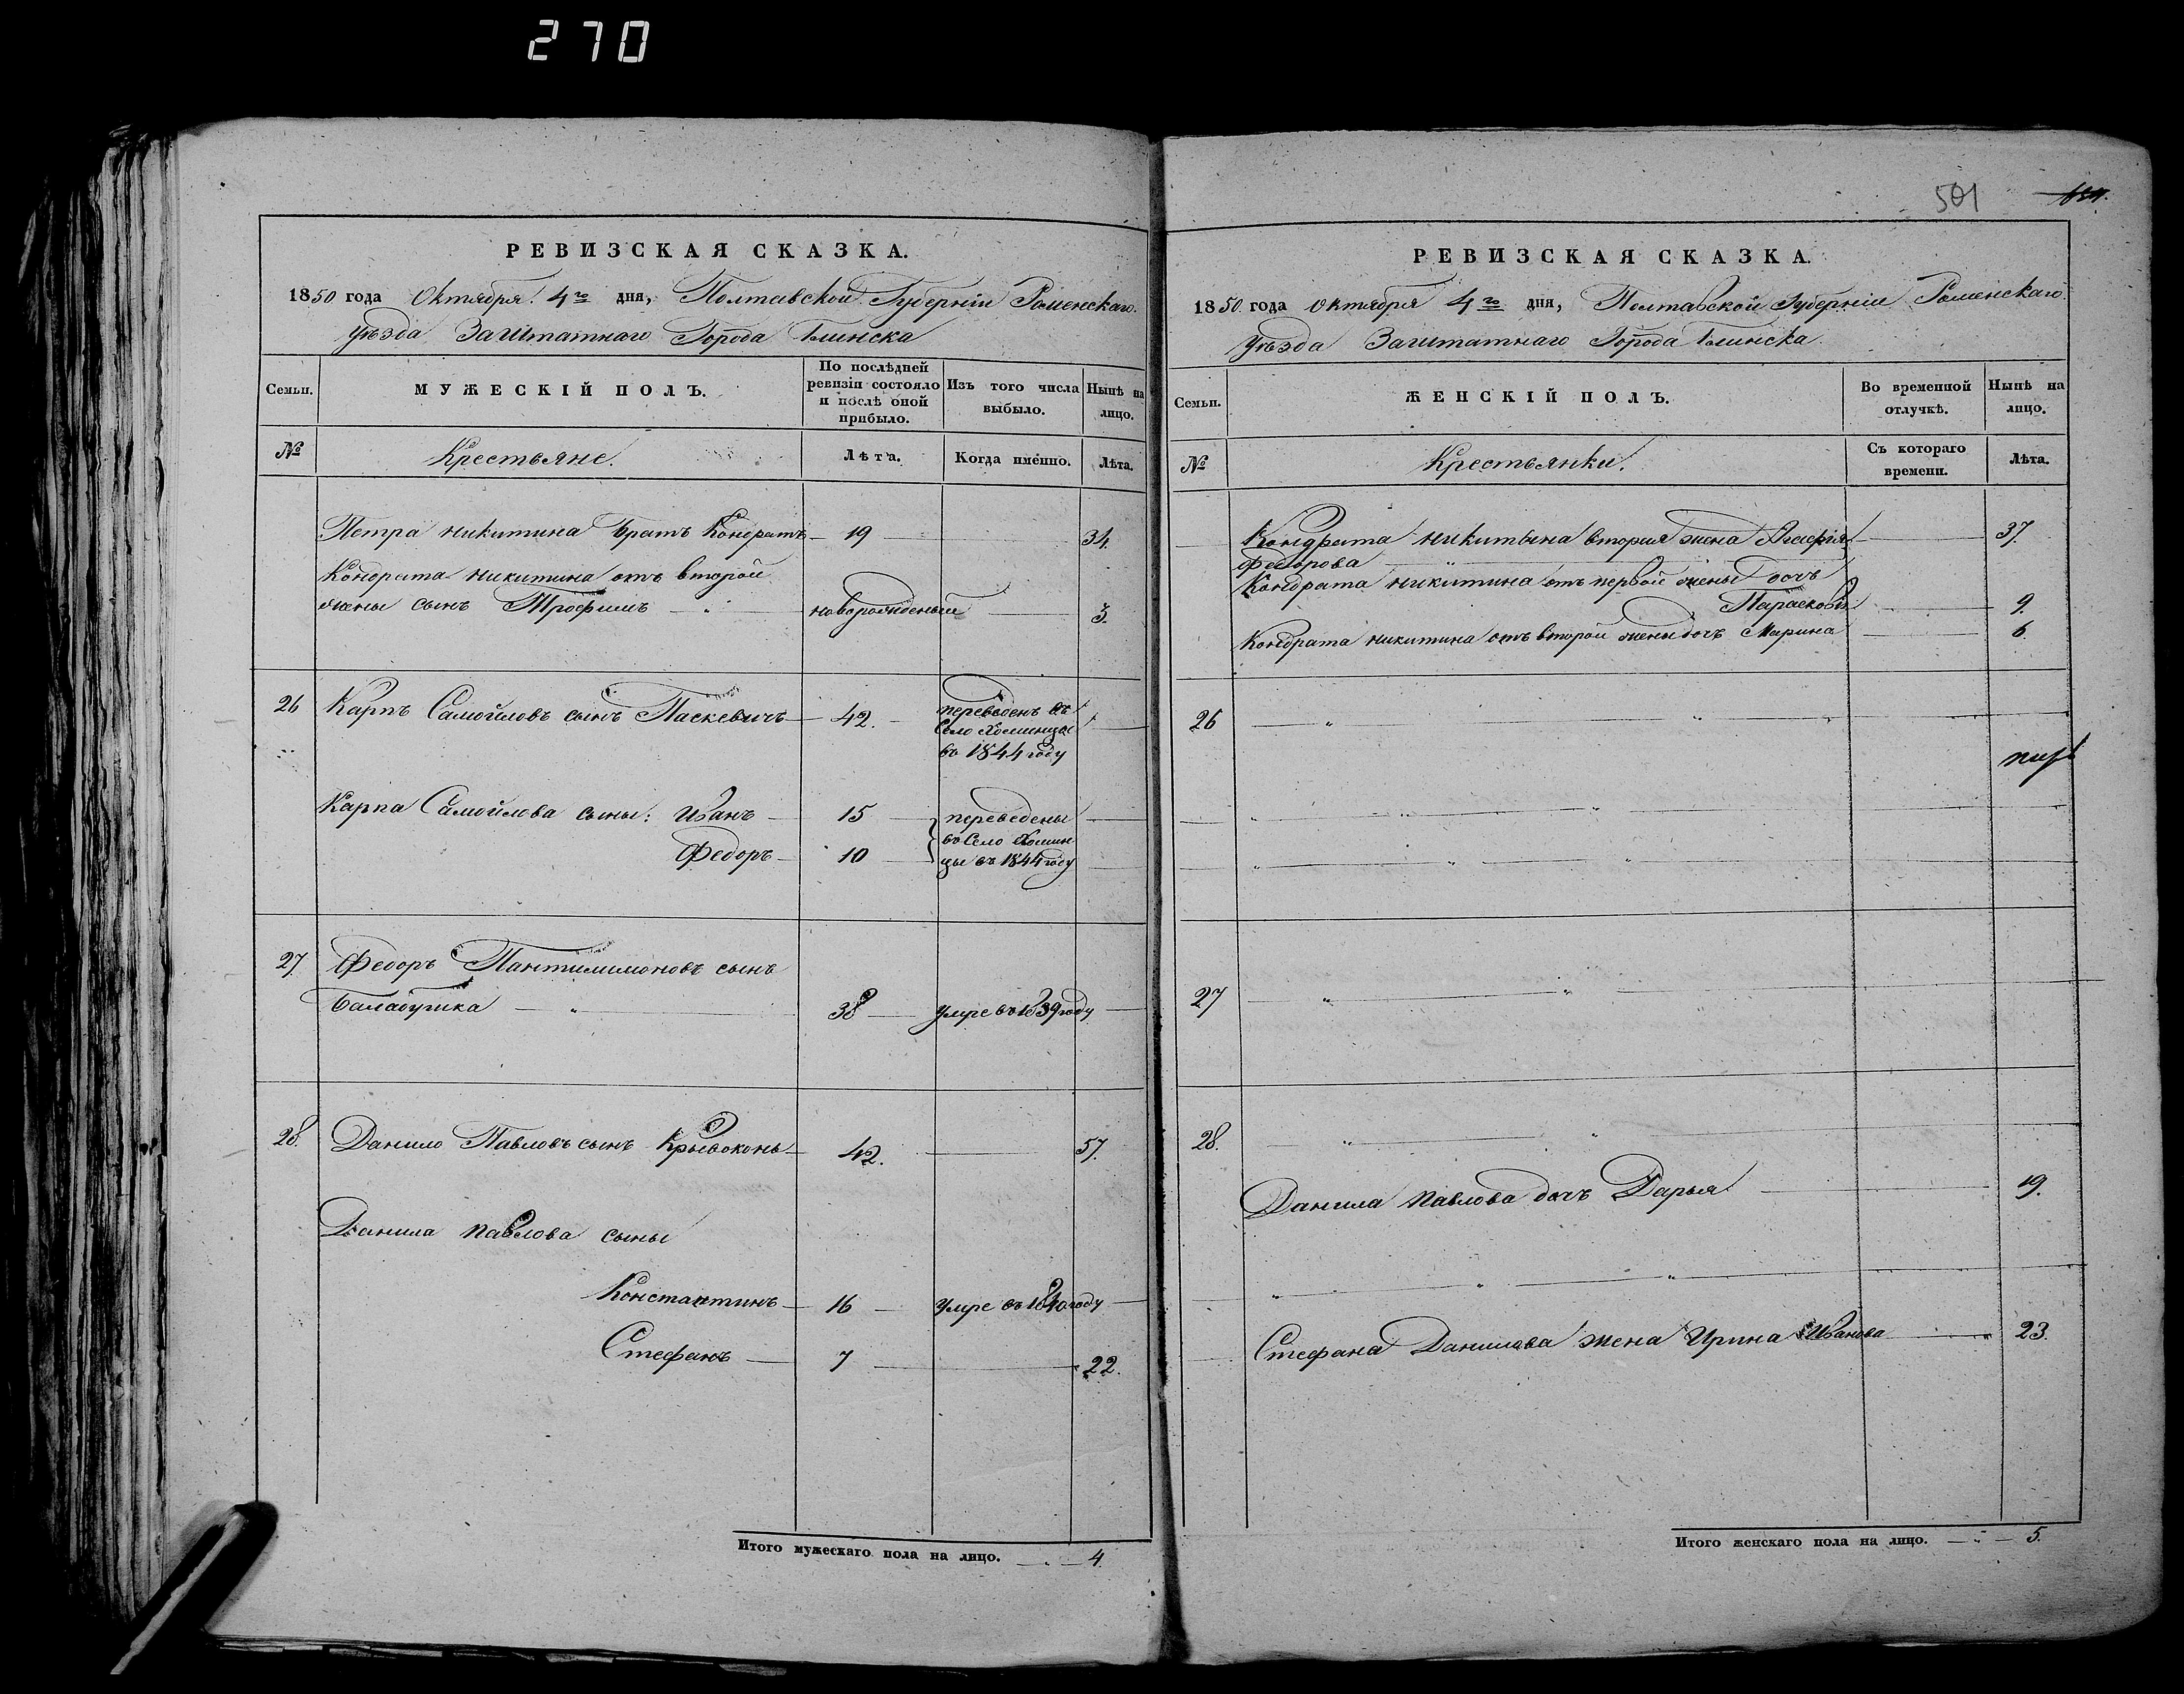 270
501
РЕВИЗСКАЯ СКАЗКА.
1850 года Октября 4го дня, Полтавской Губерніи Роменскаго
Уѣзда Заштатнаго Города Глинска
Семьи.
МУЖЕСКІЙ ПОЛЪ.
По послѣдней ревизіи состояло и послѣ оной прибыло.
Изъ того числа выбыло.
Нынѣ на лицо.
№
Крестьяне.
Лѣта.
Когда именно.
Лѣта.
Петра Никитина братъ Кондратъ — 19 — 34.
Кондрата Никитина отъ второй
жены сынъ Трофимъ — новорожденый — 3.
26 Карпъ Самойловъ сынъ Паскевичъ — 42. — переведенъ въ
Село Хоминцы
въ 1844 году
Карпа Самойлова сыны: Иванъ — 15 — переведены
въ Село Хомин-
Федоръ — 10 — цы въ 1844 году
27 Федоръ Пантилимоновъ сынъ
Балабушка — " — 38 — умре въ 1839 году
28. Данило Павловъ сынъ Крывоконь — 42. — 57.
Данила Павлова сыны
Константинъ — 16 — умре въ 1840 году
Стефанъ — 7 — 22.
Итого мужескаго пола на лицо. — 4.
РЕВИЗСКАЯ СКАЗКА.
1850 года Октября 4го дня, Полтавской Губерніи Роменскаго
Уѣзда Заштатнаго Города Глинска
Семьи.
ЖЕНСКІЙ ПОЛЪ.
Во временной отлучкѣ.
Нынѣ на лицо.
№
Крестьянки.
Съ котораго времени.
Лѣта.
Кондрата Никитына вторая жена Агафія — 37.
Федорова
Кондрата Никитина отъ первой жены дочь
Парасковія — 9.
Кондрата Никитина отъ второй жены дочь Марина — 6
26 — " — " — "
" — " — "
" — " — "
27 — " — " — "
28. — " — "
Данила Павлова дочь Дарья — 19.
" — " — "
Стефана Данилова жена Ирина Иванова — 23.
Итого женскаго пола на лицо. — 5.